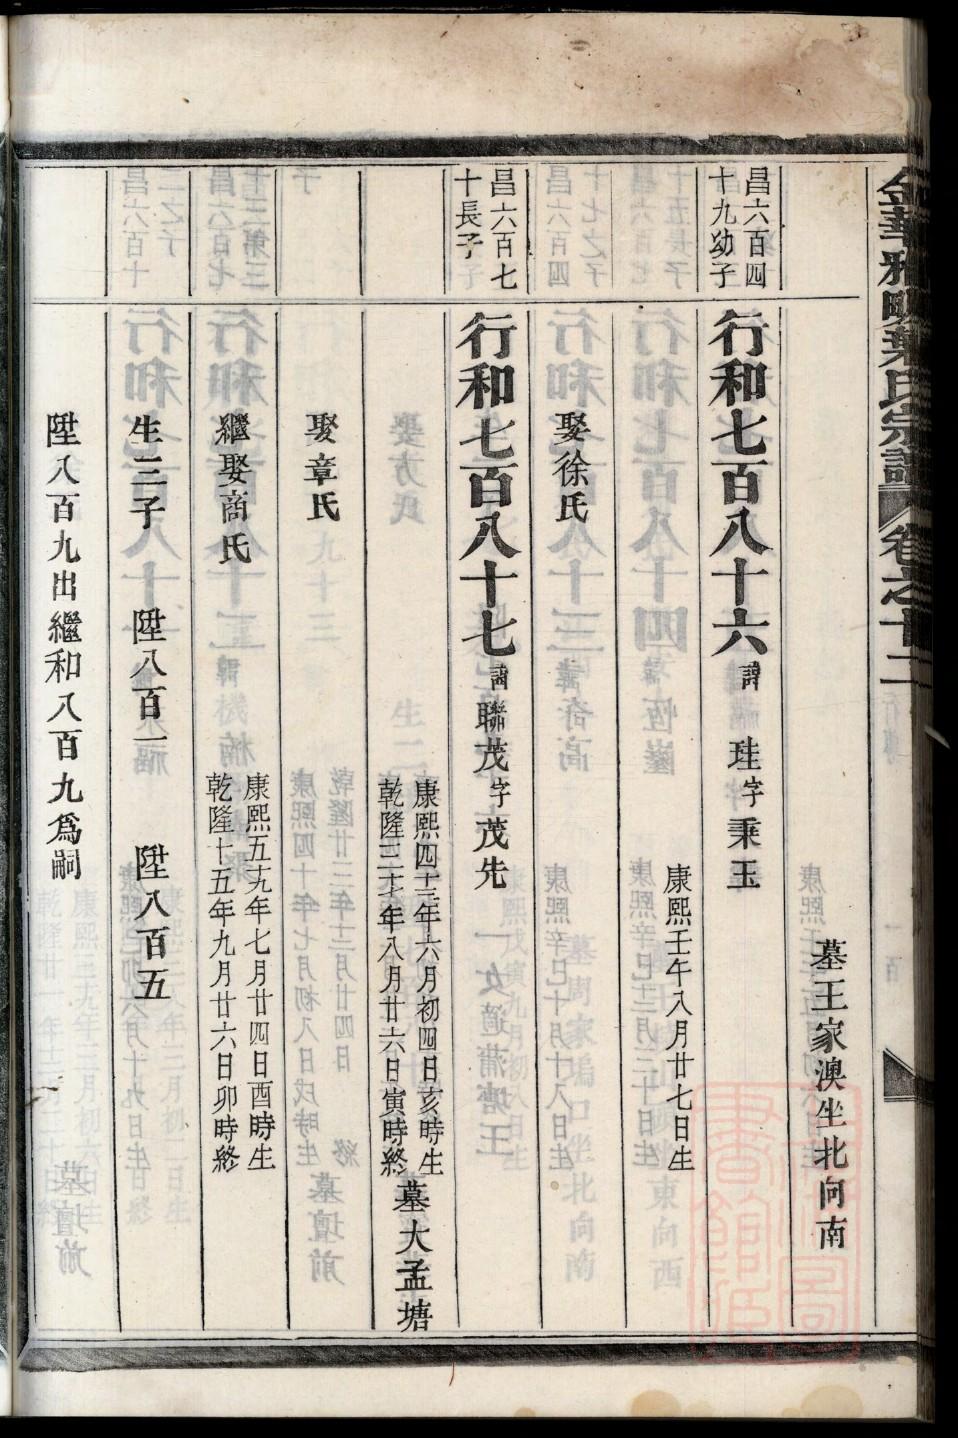 金華雅畈葉氏宗譜 卷之十二
墓王家澳坐北向南
昌六百四
十九幼子
行和七百八十六 諱 珪 字 秉玉
康熙壬午八月廿七日生
娶徐氏
昌六百七
十長子
行和七百八十七 諱 聯茂 字 茂先
康熙四十三年六月初四日亥時生
乾隆三十七年八月廿六日寅時終
墓大孟塘
娶章氏
繼娶商氏
康熙五十九年七月廿四日酉時生
乾隆十五年九月廿六日卯時終
生三子 陞八百一 陞八百五
陞八百九出繼和八百九爲嗣